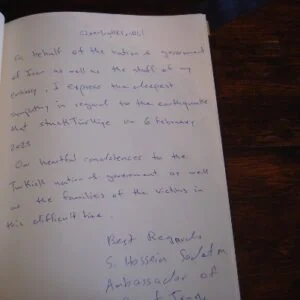 On behalf of the nation & government
of Iran as well as the staff of my
embassy, I express their deepest
sympathy in regard to the earthquake
that struck Türkiye on 6 February
2023
Our heartful condolences to the
Turkish nation & government as well
as the families of the victims in
this difficult time.
Best Regards
S. Hossein
Ambassador of
Iran